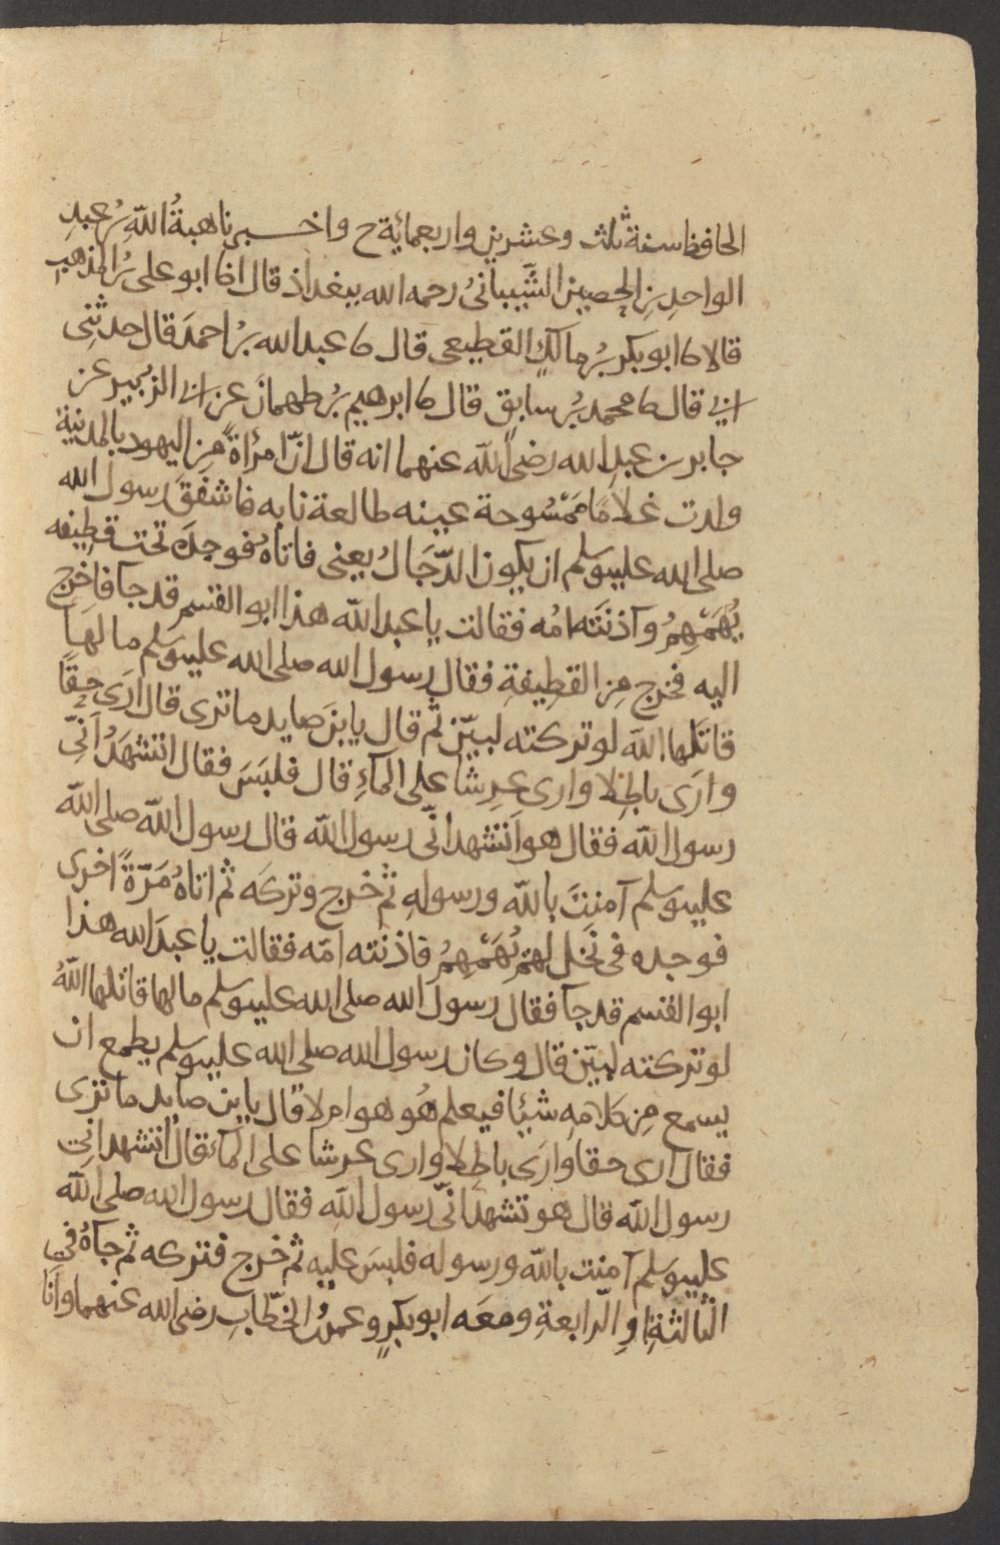 الحافظ سنة ثلث وعشرين واربعمائة ح واخـــبرنا هبةُ الله بنُ عبدِ
الواحدِ بنِ الحصين الشَّيبانىُ رحمه الله ببغداذ قال انا ابو على بنُ المذهب
قالا ثنا ابو بكر بنُ مالكٍ القطيعى قال ثنا عبد الله بنُ احمدَ قال حدثنِى
ابى قال ثنا محمد بنُ سابق قال ثنا ابرهيم بنُ طهمانَ عن ابى الزبير عن
جابر بن عبدِ الله رضى الله عنهما انه قال انّ امرأةً مِن اليهود بالمدنية
ولدت غلامًا مَمْسُوحة عينه طالعة نابه فاشفقَ رسول الله
صلى الله عليه وسلم ان يكون الدّجَالُ يعنى فاتاهُ فوجدَه تحت قطِيفه
يُهَمْهِمُ وآذنَته امُه فقالت يا عبد الله هذا ابو القسم قد جآ فاخرج
اليه فخرج مِن القطِيفةِ فقال رسول الله صلى الله عليه وسلم ما لها
قاتَلها الله لو تركته لبيّن ثم قال يا بنَ صايد ما ترى قال ارَى حقًا
وارَى باطلا وارى عرشا على المآءِ قال فلبَسَ فقال اتشهَدُ انّى
رسول الله فقال هو اَتشهد انّى رسول الله قال رسول الله صلى الله
عليه وسلم آمنتَ بالله ورسولِه ثم خرج وتركَه ثم اتاهُ مَرّةً اخرى
فوجده فى نَخل لهم يُهَمْهِمُ فاذنَته امّه فقالت يا عبدَ الله هذا
ابو القسم قد جآ فقال رسول الله صلى الله عليه وسلم ما لها قاتلها اللهُ
لو تركته لبيّن قال وكان رسول الله صلى الله عليه وسلم يطمع ان
يسمع مِن كلامِه شيئا فيعلم هُو هو ام لا قال يا بن صايد ما ترى
فقال ارى حقا وارَى باطِلا وارى عرشا على المآءِ قال اتشهد انِى
رسول الله قال هو تشهد انّى رسول الله فقال رسول الله صلى الله
عليه وسلم آمنت بالله ورسوله فلبسَ عليه ثم خرج فتركه ثم جآهُ فى
الثالثةِ او الرابعةِ ومعَه ابو بكرٍ وعمرُ بن الخطّابِ رضى الله عنهما وانا